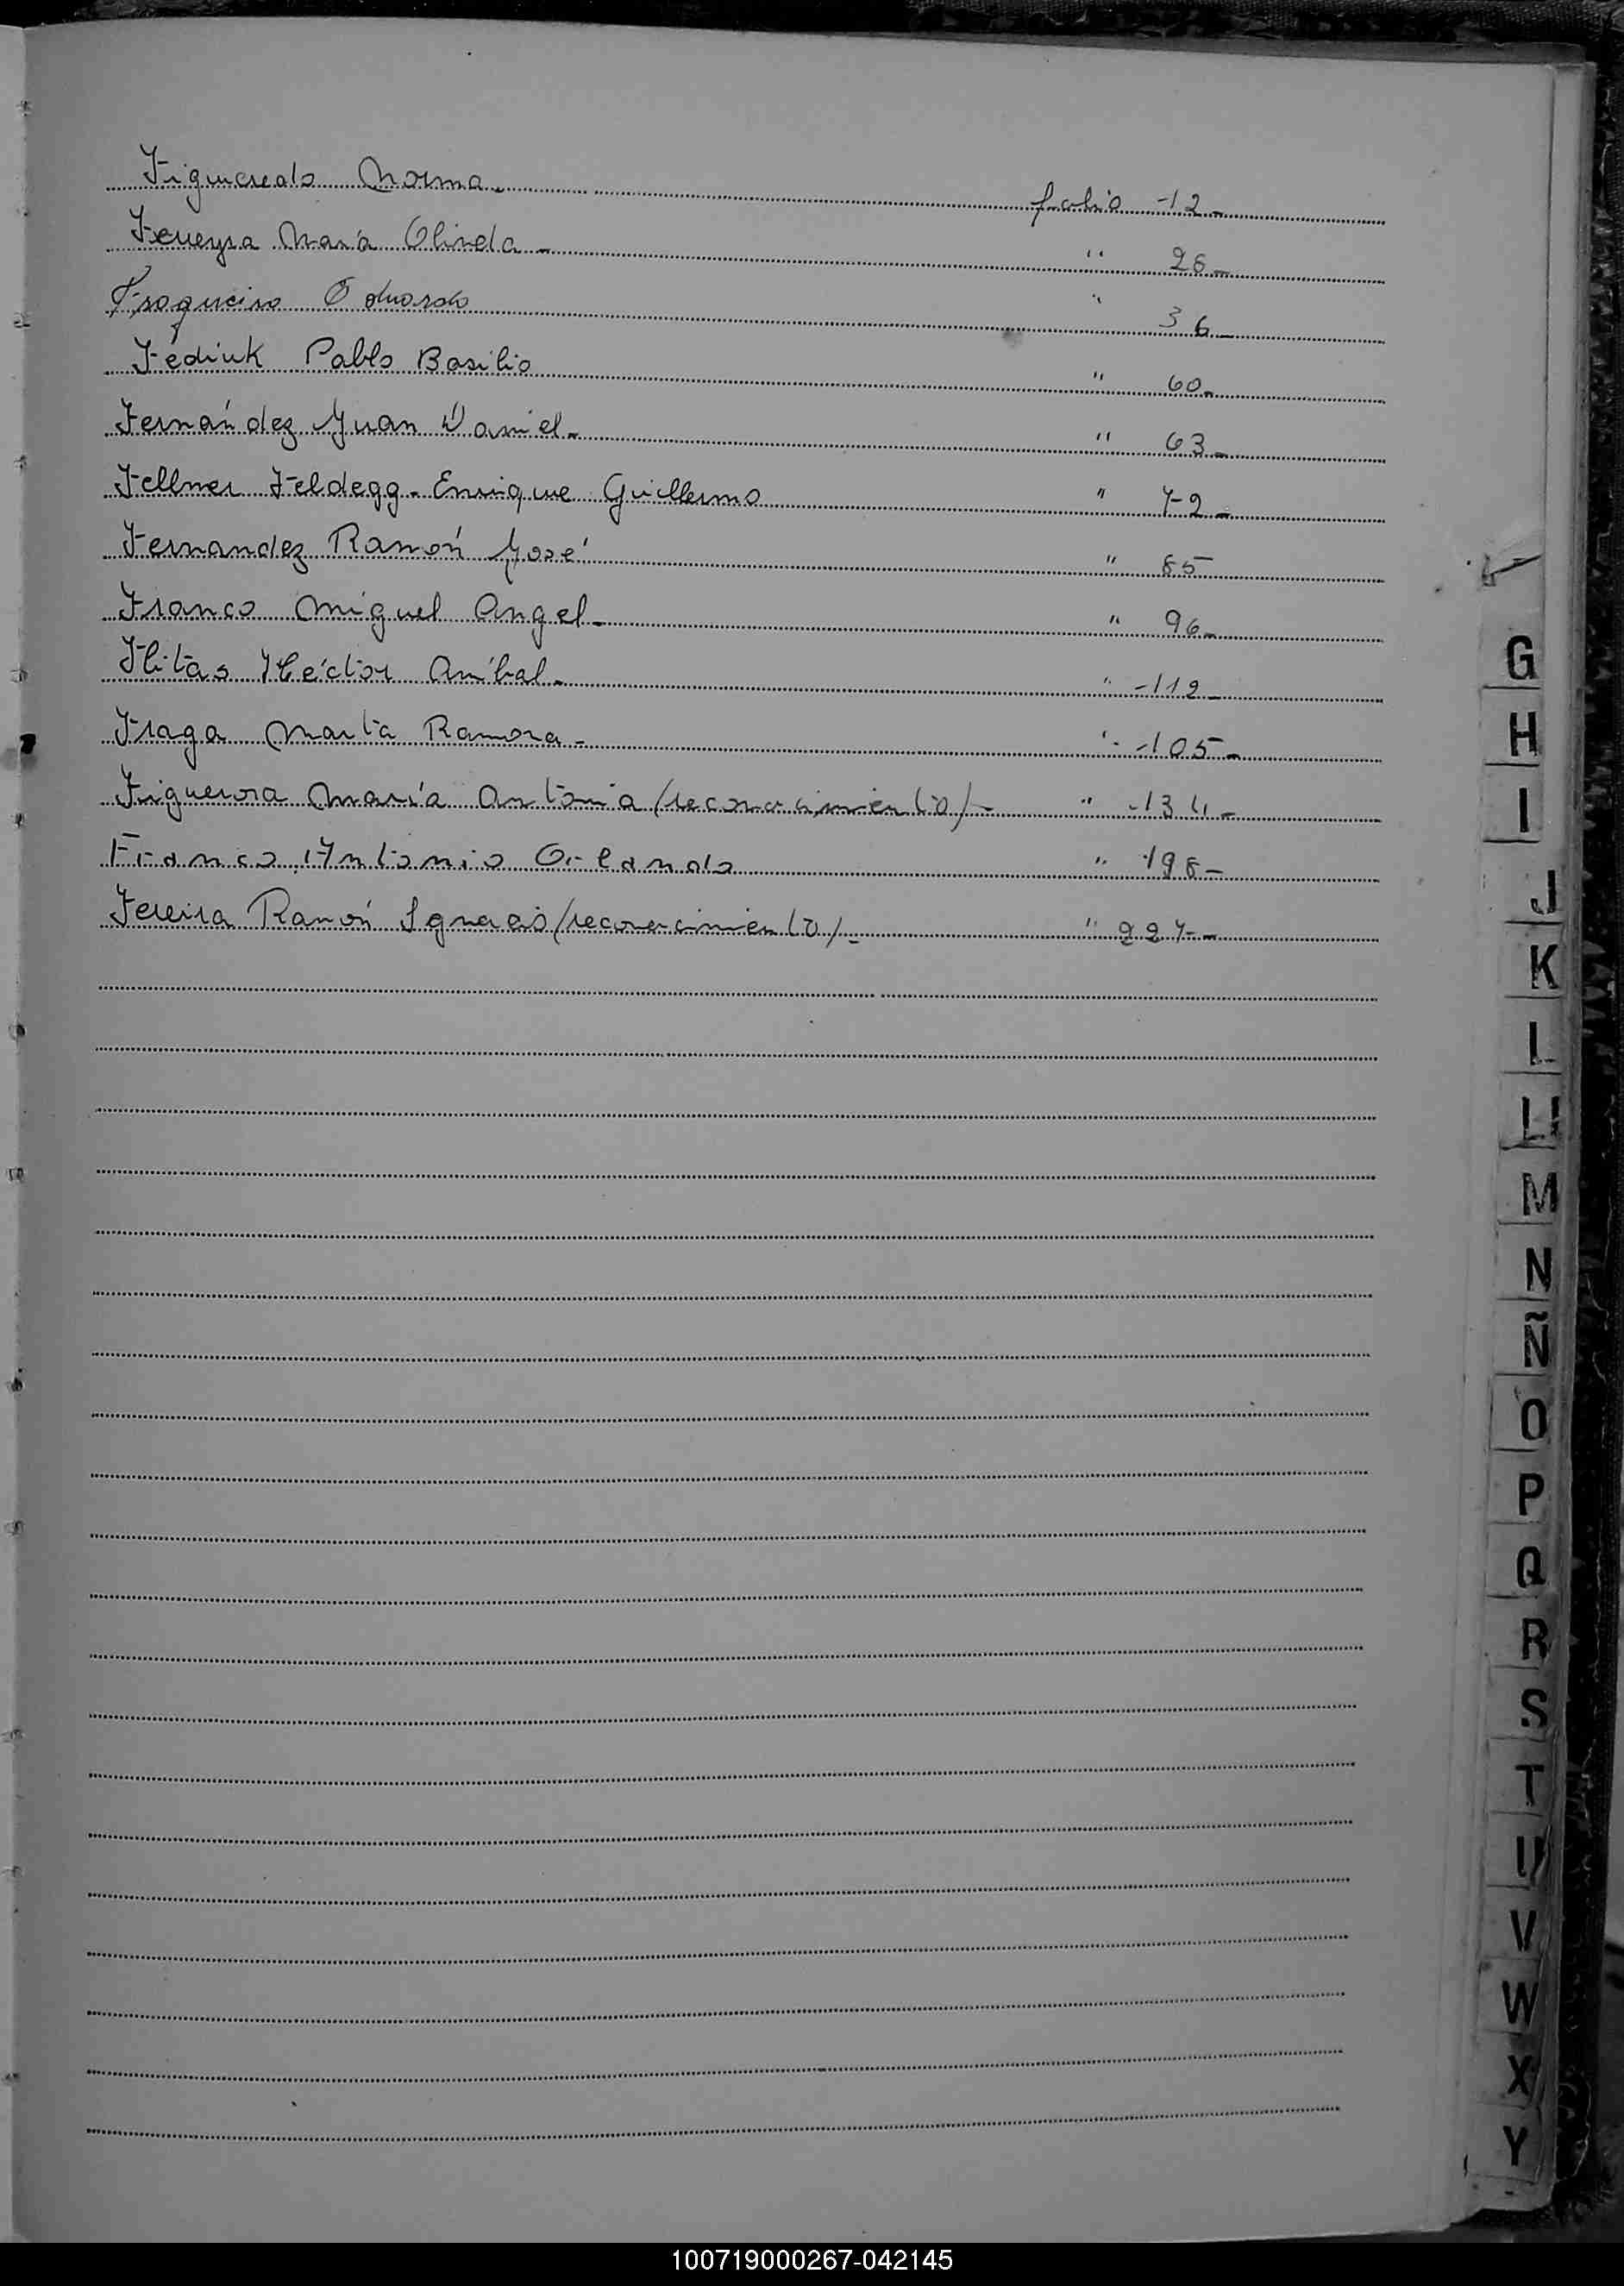 Figueredo Norma. folio -12-
Ferreyra María Olinda - " 28-
Fragueiro Eduardo " 36-
Fédiuk Pablo Basilio " 60-
Fernández Juan Daniel- " 63-
Fellner Feldegg- Enrique Guillermo " 72-
Fernandez Ramón José " 85
Franco Miguel Angel- " 96-
Flitas Héctor Aníbal- " -112-
Fraga Marta Ramona- " -105-
Figueroa María Antonia (reconocimiento)- " -134-
Franco, Antonio Orlando " 198-
Fereira Ramón Ignacio (reconocimiento)- " 227-
G
H
I
J
K
L
Ll
M
N
Ñ
O
P
Q
R
S
T
U
V
W
X
Y
100719000267-042145